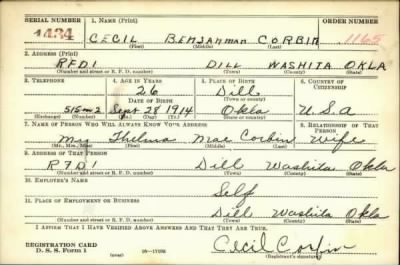 SERIAL NUMBER 1. NAME (Print) ORDER NUMBER
434 CECIL BENJANMAN CORBIN 1165
(First) (Middle) (Last)
2. ADDRESS (Print)
RFD1 DILL WASHITA OKLA
(Number and street or R. F. D. number) (Town) (County) (State)
3. TELEPHONE 4. AGE IN YEARS 5. PLACE OF BIRTH 6. COUNTRY OF CITIZENSHIP
26 Dill
DATE OF BIRTH (Town or county)
515-2 Sept 28 1914 Okla U.S.A
(Exchange) (Number) (Mo.) (Day) (Yr.) (State or country)
7. NAME OF PERSON WHO WILL ALWAYS KNOW YOUR ADDRESS 8. RELATIONSHIP OF THAT PERSON
Mrs Thelma Mae Corbin Wife
(Mr., Mrs., Miss) (First) (Middle) (Last)
9. ADDRESS OF THAT PERSON
RFD1 Dill Washita Okla
(Number and street or R. F. D. number) (Town) (County) (State)
10. EMPLOYER'S NAME
Self
11. PLACE OF EMPLOYMENT OR BUSINESS
Dill Washita Okla
(Number and street or R. F. D. number) (Town) (County) (State)
I AFFIRM THAT I HAVE VERIFIED ABOVE ANSWERS AND THAT THEY ARE TRUE.
REGISTRATION CARD
D. S. S. Form 1 (over) Cecil Corbin
(Registrant's signature)